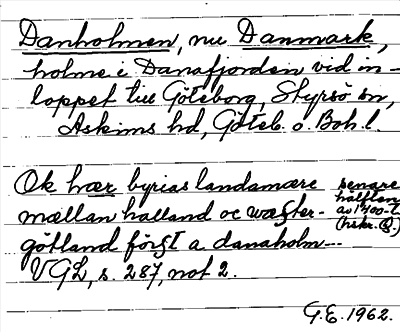 Danholmen, nu Danmark,
holme i Danafjorden vid in-
loppet till Göteborg, Styrsö sn,
Askims hd, Göteb. o. Boh. l.
Ok hær byrias landamære
mællan halland oc wæster-
götland förſt a danaholm---
VGL, s. 287, not 2.
senare
hälften
av 1400-t.
(hskr. B.)
G.E. 1962.